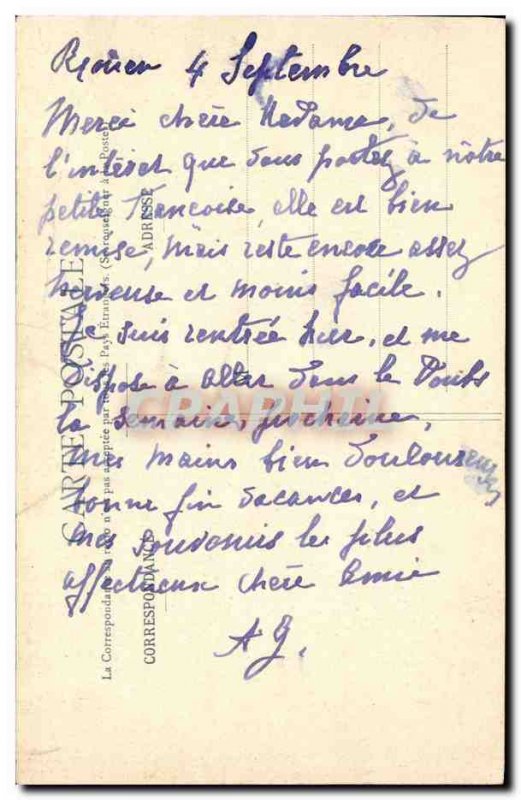 Rouen 4 Septembre
Merci chère Madame, de
l'intérêt que vous portez à nôtre
petite Françoise, elle est bien
remise, mais reste encore assez
nerveuse et moins facile.
Je suis rentrée hier, et me
dispose à aller dans le Doubs
la semaine prochaine,
mes mains bien douloureuses
bonne fin vacances, et
mes souvenirs les plus
affectueux chère Amie
AG.
CARTE POSTALE
La Correspondance au recto n'est pas acceptée par tous les Pays Étrangers. (Se renseigner à la Poste)
CORRESPONDANCE
ADRESSE
CPAPHIL